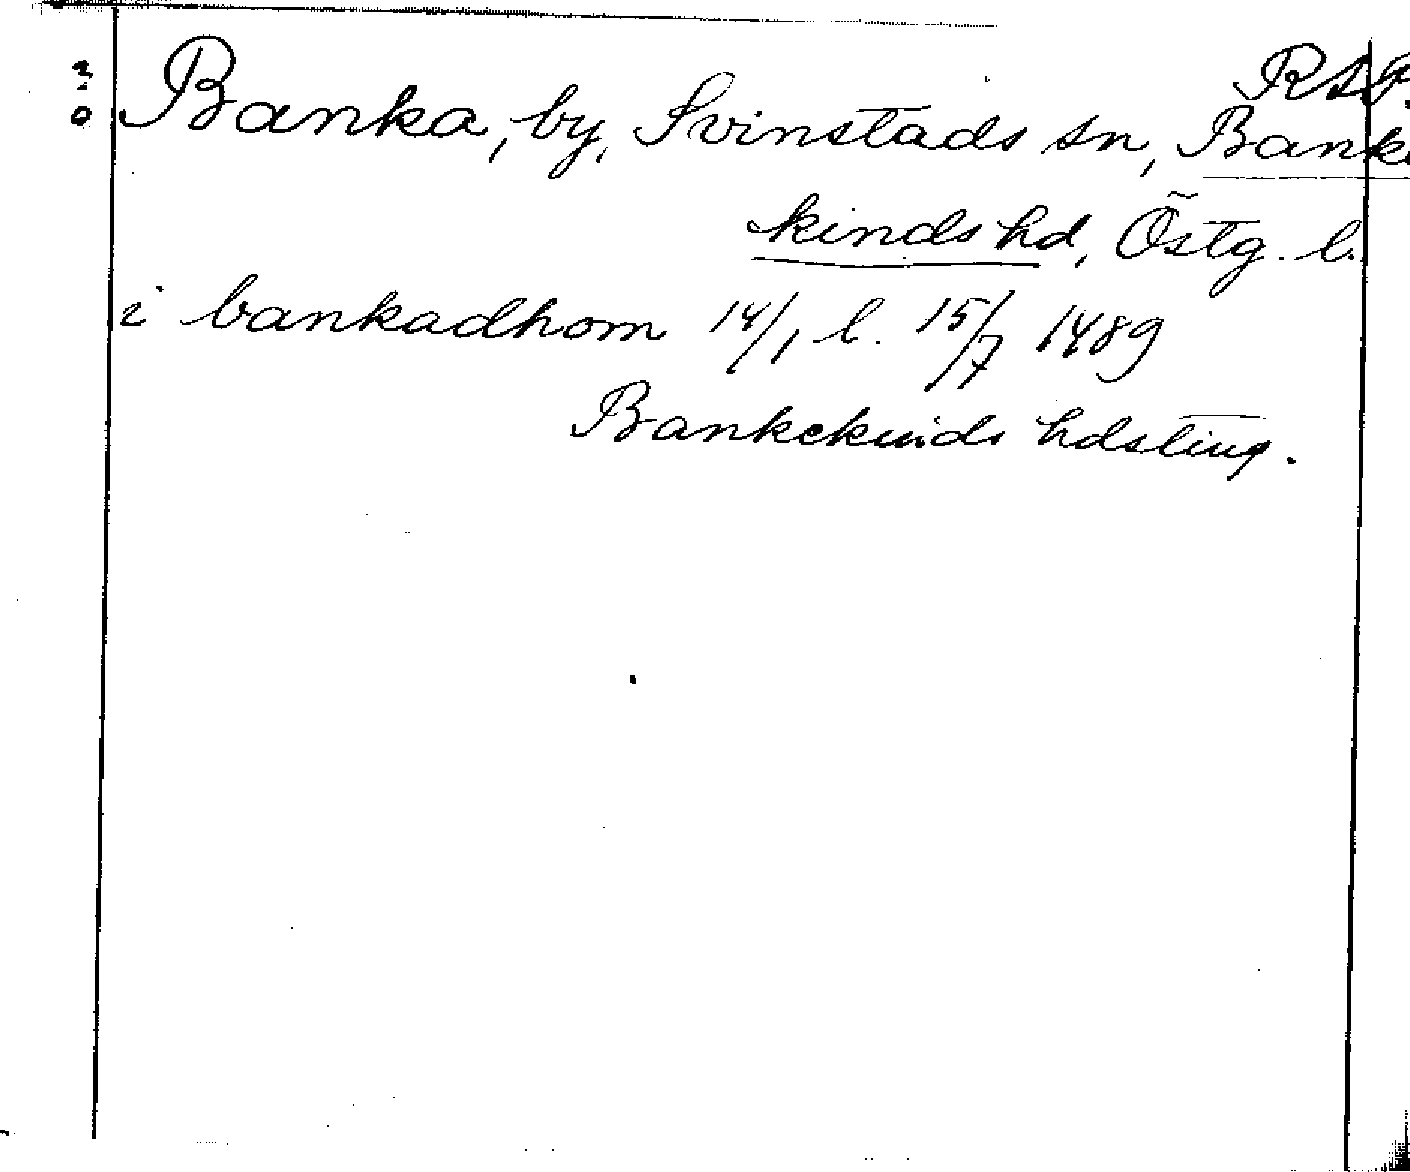 RAP.
Banka, by, Svinstads sn, Banke
kinds hd, Östg. l.
i bankadhom 14/1 l. 15/7 1489
Bankekinds hdsting.